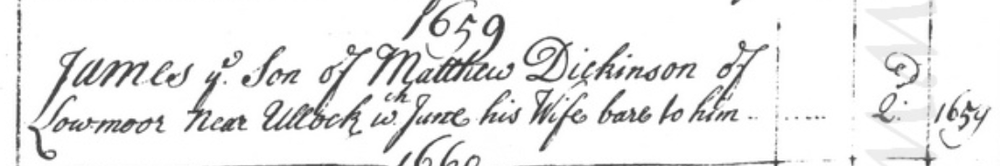 1659
James yᵉ Son of Matthew Dickinson of
Lowmoor Near Ullock wᶜʰ June his Wife bare to him . . . . . . . 2. 1659
1660